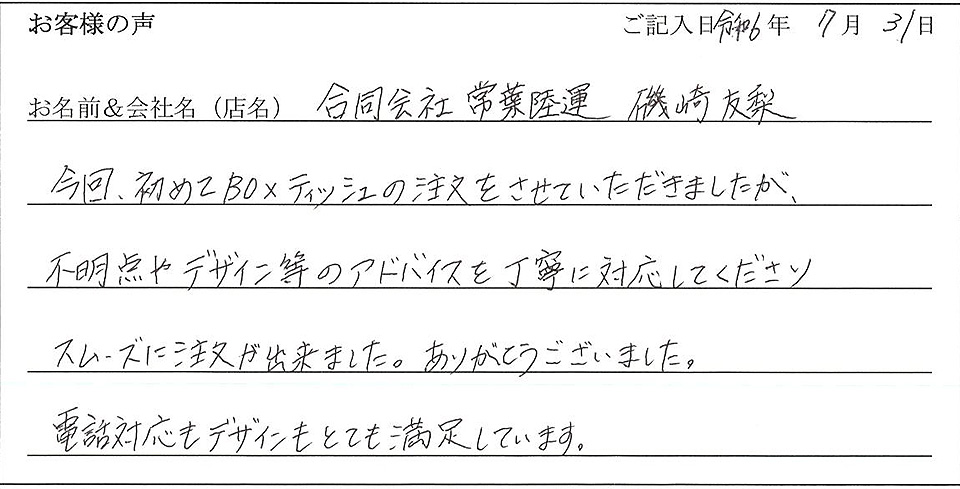 お客様の声 ご記入日 令和6年 7月 31日
お名前&会社名（店名） 合同会社 常葉陸運 磯崎友梨
今回、初めてBOXティッシュの注文をさせていただきましたが、
不明点やデザイン等のアドバイスを丁寧に対応してくださり
スムーズに注文が出来ました。ありがとうございました。
電話対応もデザインもとても満足しています。